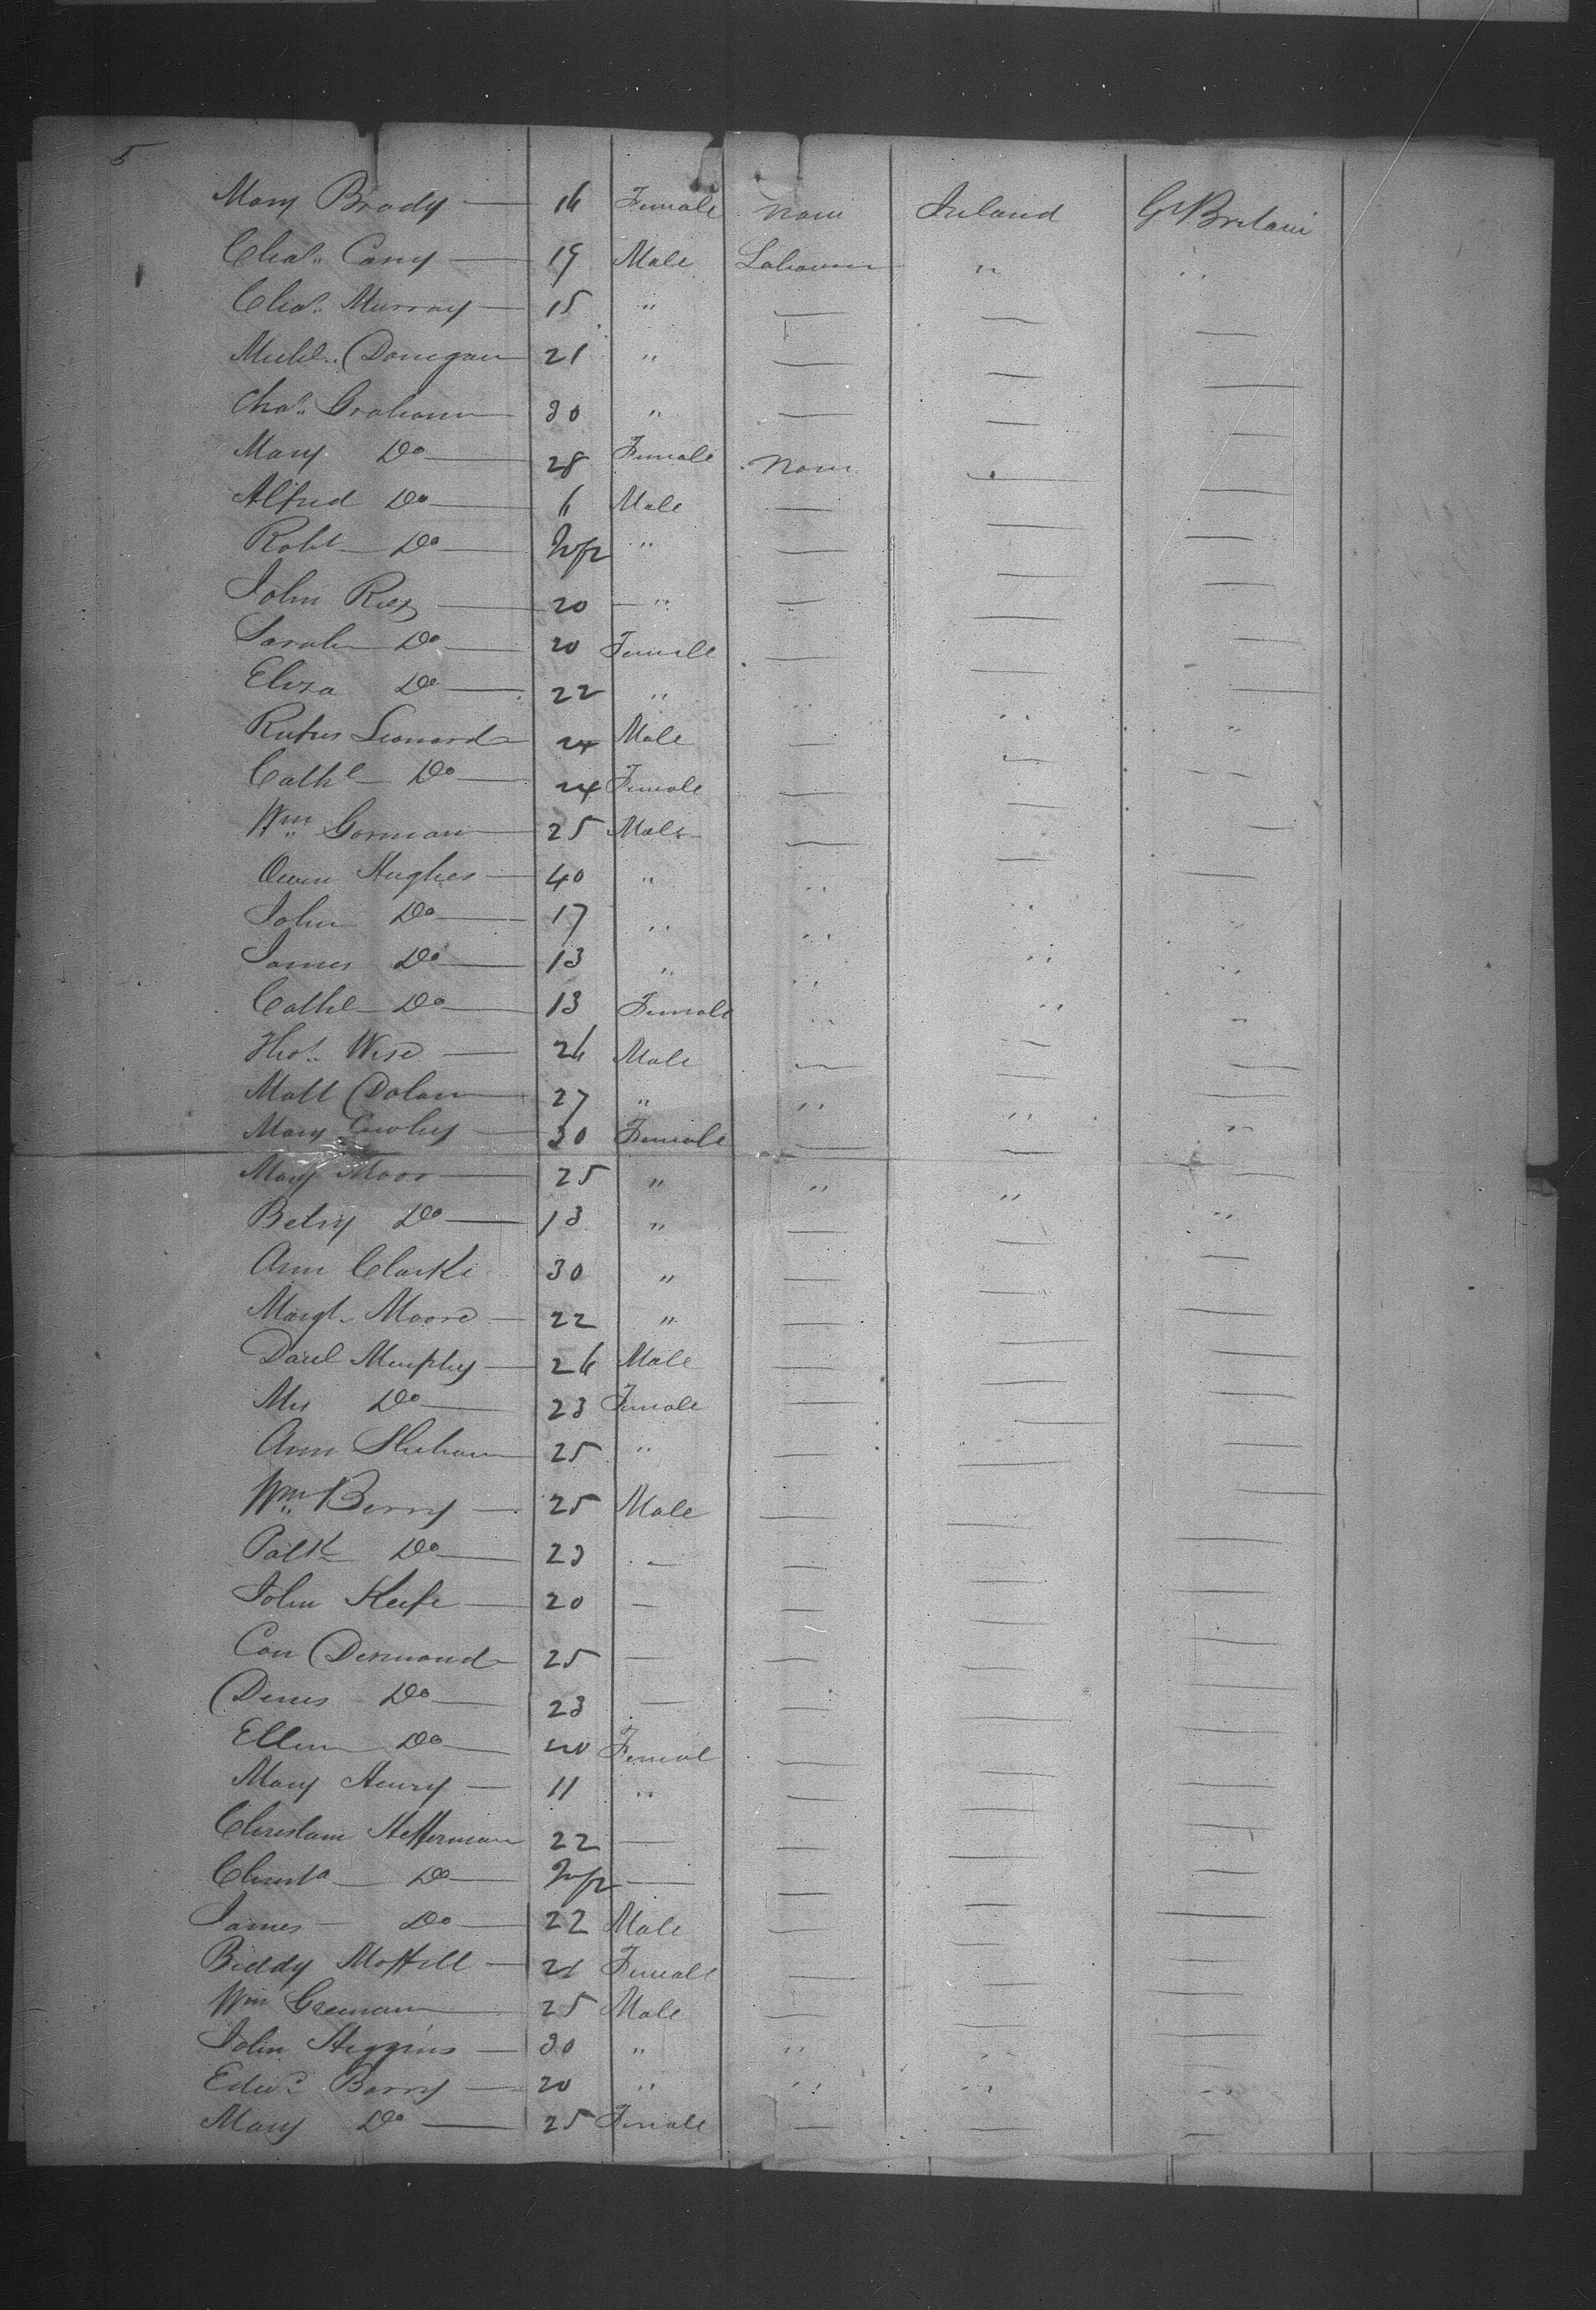 5
Mary Brady — 16 Female None Ireland Gt Britain
Chas. Cary — 19 Male Labourer " "
Chas. Murray — 15 " — — —
Michl. Donegan 21 " — — —
Chas. Graham 30 " — — —
Mary Do — 28 Female None — —
Alfred Do — 6 Male — — —
Robt Do — Inft " — — —
John — 20 — " — — —
Sarah Do — 20 Female — — —
Eliza Do — 22 " " " "
Rufus Leonard 24 Male — — —
Cathe Do — 24 Female — — —
Wm Gorman 25 Male — — —
Owen Hughes — 40 " " " "
John Do — 17 " " " "
James Do — 13 " " " "
Cathe Do — 13 Female — — —
Thos. Wise — 26 Male — — —
Matt Dolan 27 " " " "
Mary — 30 Female — — —
Mary Moor — 25 " " " "
Betsy Do — 13 " — — —
Ann Clarke 30 " — — —
Margt. Moore — 22 " — — —
Danl Murphy — 26 Male — — —
Mrs Do — 23 Female — — —
Ann Shehan 25 " — — —
Wm Berry — 25 Male — — —
Patk Do — 23 — — — —
John Keefe — 20 — — — —
Con Desmond 25 — — — —
Denis Do — 23 — — — —
Ellen Do — 20 Female — — —
Mary Henry — 11 " — — —
Heffernan 22 — — — —
Do — Inft — — — —
James — Do — 22 Male — — —
Biddy — 21 Female — — —
Wm 25 Male — — —
John Higgins — 30 " " " "
Edwd. Barry — 20 " " " "
Mary Do — 25 Female — — —